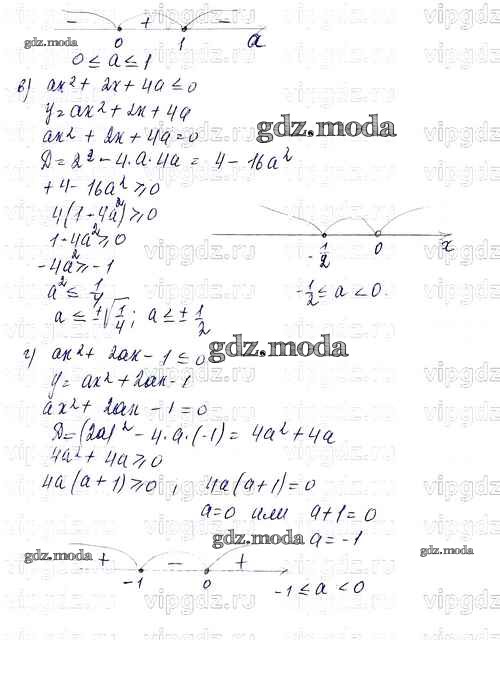 - + -
0 1 a
gdz.moda
0 ≤ a ≤ 1
в) ax² + 2x + 4a ≤ 0
y = ax² + 2x + 4a
ax² + 2x + 4a = 0
gdz.moda
D = 2² - 4·a·4a = 4 - 16a²
+ 4 - 16a² ≥ 0
4(1 - 4a²) ≥ 0
1 - 4a² ≥ 0
-1/2 0 x
-4a² ≥ -1
a² ≤ 1/4
-1/2 ≤ a < 0.
a ≤ ±√1/4; a ≤ ± 1/2
gdz.moda
г) ax² + 2ax - 1 ≤ 0
y = ax² + 2ax - 1
ax² + 2ax - 1 = 0
D = (2a)² - 4·a·(-1) = 4a² + 4a
4a² + 4a ≥ 0
4a(a + 1) ≥ 0, 4a(a + 1) = 0
a = 0 или a + 1 = 0
gdz.moda a = -1
gdz.moda gdz.moda
+ - +
-1 0
-1 ≤ a < 0
vipgdz.ru